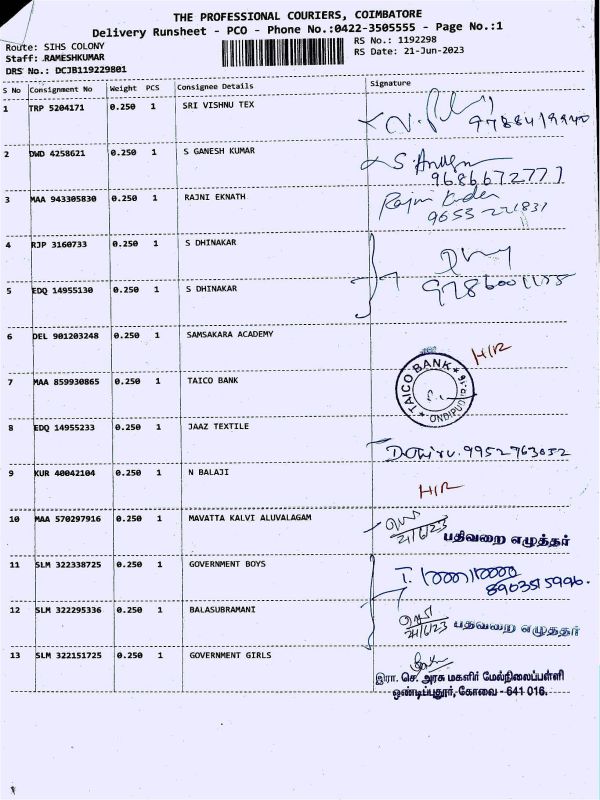 THE PROFESSIONAL COURIERS, COIMBATORE
Delivery Runsheet - PCO - Phone No.:0422-3505555 - Page No.:1
Route: SIHS COLONY
RS No.: 1192298
Staff: RAMESHKUMAR
RS Date: 21-Jun-2023
DRS No.: DCJB119229801
S No Consignment No Weight PCS Consignee Details Signature
1 TRP 5204171 0.250 1 SRI VISHNU TEX
9788419940
2 DWD 4258621 0.250 1 S GANESH KUMAR
9686672777
3 MAA 943305830 0.250 1 RAJNI EKNATH Rajni
9655221831
4 RJP 3160733 0.250 1 S DHINAKAR
5 EDQ 14955130 0.250 1 S DHINAKAR 9786001155
6 DEL 901203248 0.250 1 SAMSAKARA ACADEMY H/R
7 MAA 859930865 0.250 1 TAICO BANK TAICO BANK
8 EDQ 14955233 0.250 1 JAAZ TEXTILE
9952763052
9 KUR 40042104 0.250 1 N BALAJI H/R
10 MAA 570297916 0.250 1 MAVATTA KALVI ALUVALAGAM 21/6/23 பதிவறை எழுத்தர்
11 SLM 322338725 0.250 1 GOVERNMENT BOYS
8903515996.
12 SLM 322295336 0.250 1 BALASUBRAMANI 21/6/23 பதிவறை எழுத்தர்
13 SLM 322151725 0.250 1 GOVERNMENT GIRLS
இரா. செ. அரசு மகளிர் மேல்நிலைப்பள்ளி
ஒண்டிப்புதூர், கோவை - 641 016.